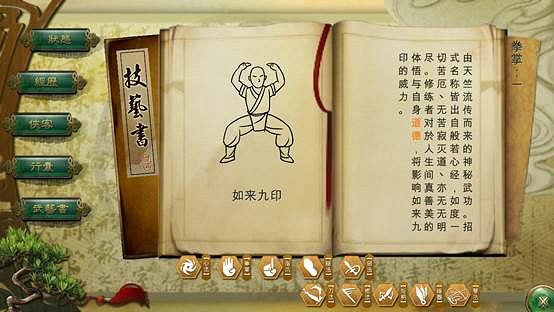 狀態
經歷
俠客
行囊
武藝書
技藝書
如来九印
拳掌
由天竺流传而来的神秘武功。招
式名称皆出自般若心经，如度一
切苦厄、无苦寂灭道、亦无无明
尽。修练者对於人生间真善美的
体悟与自身道德，将影响如来九
印的威力。